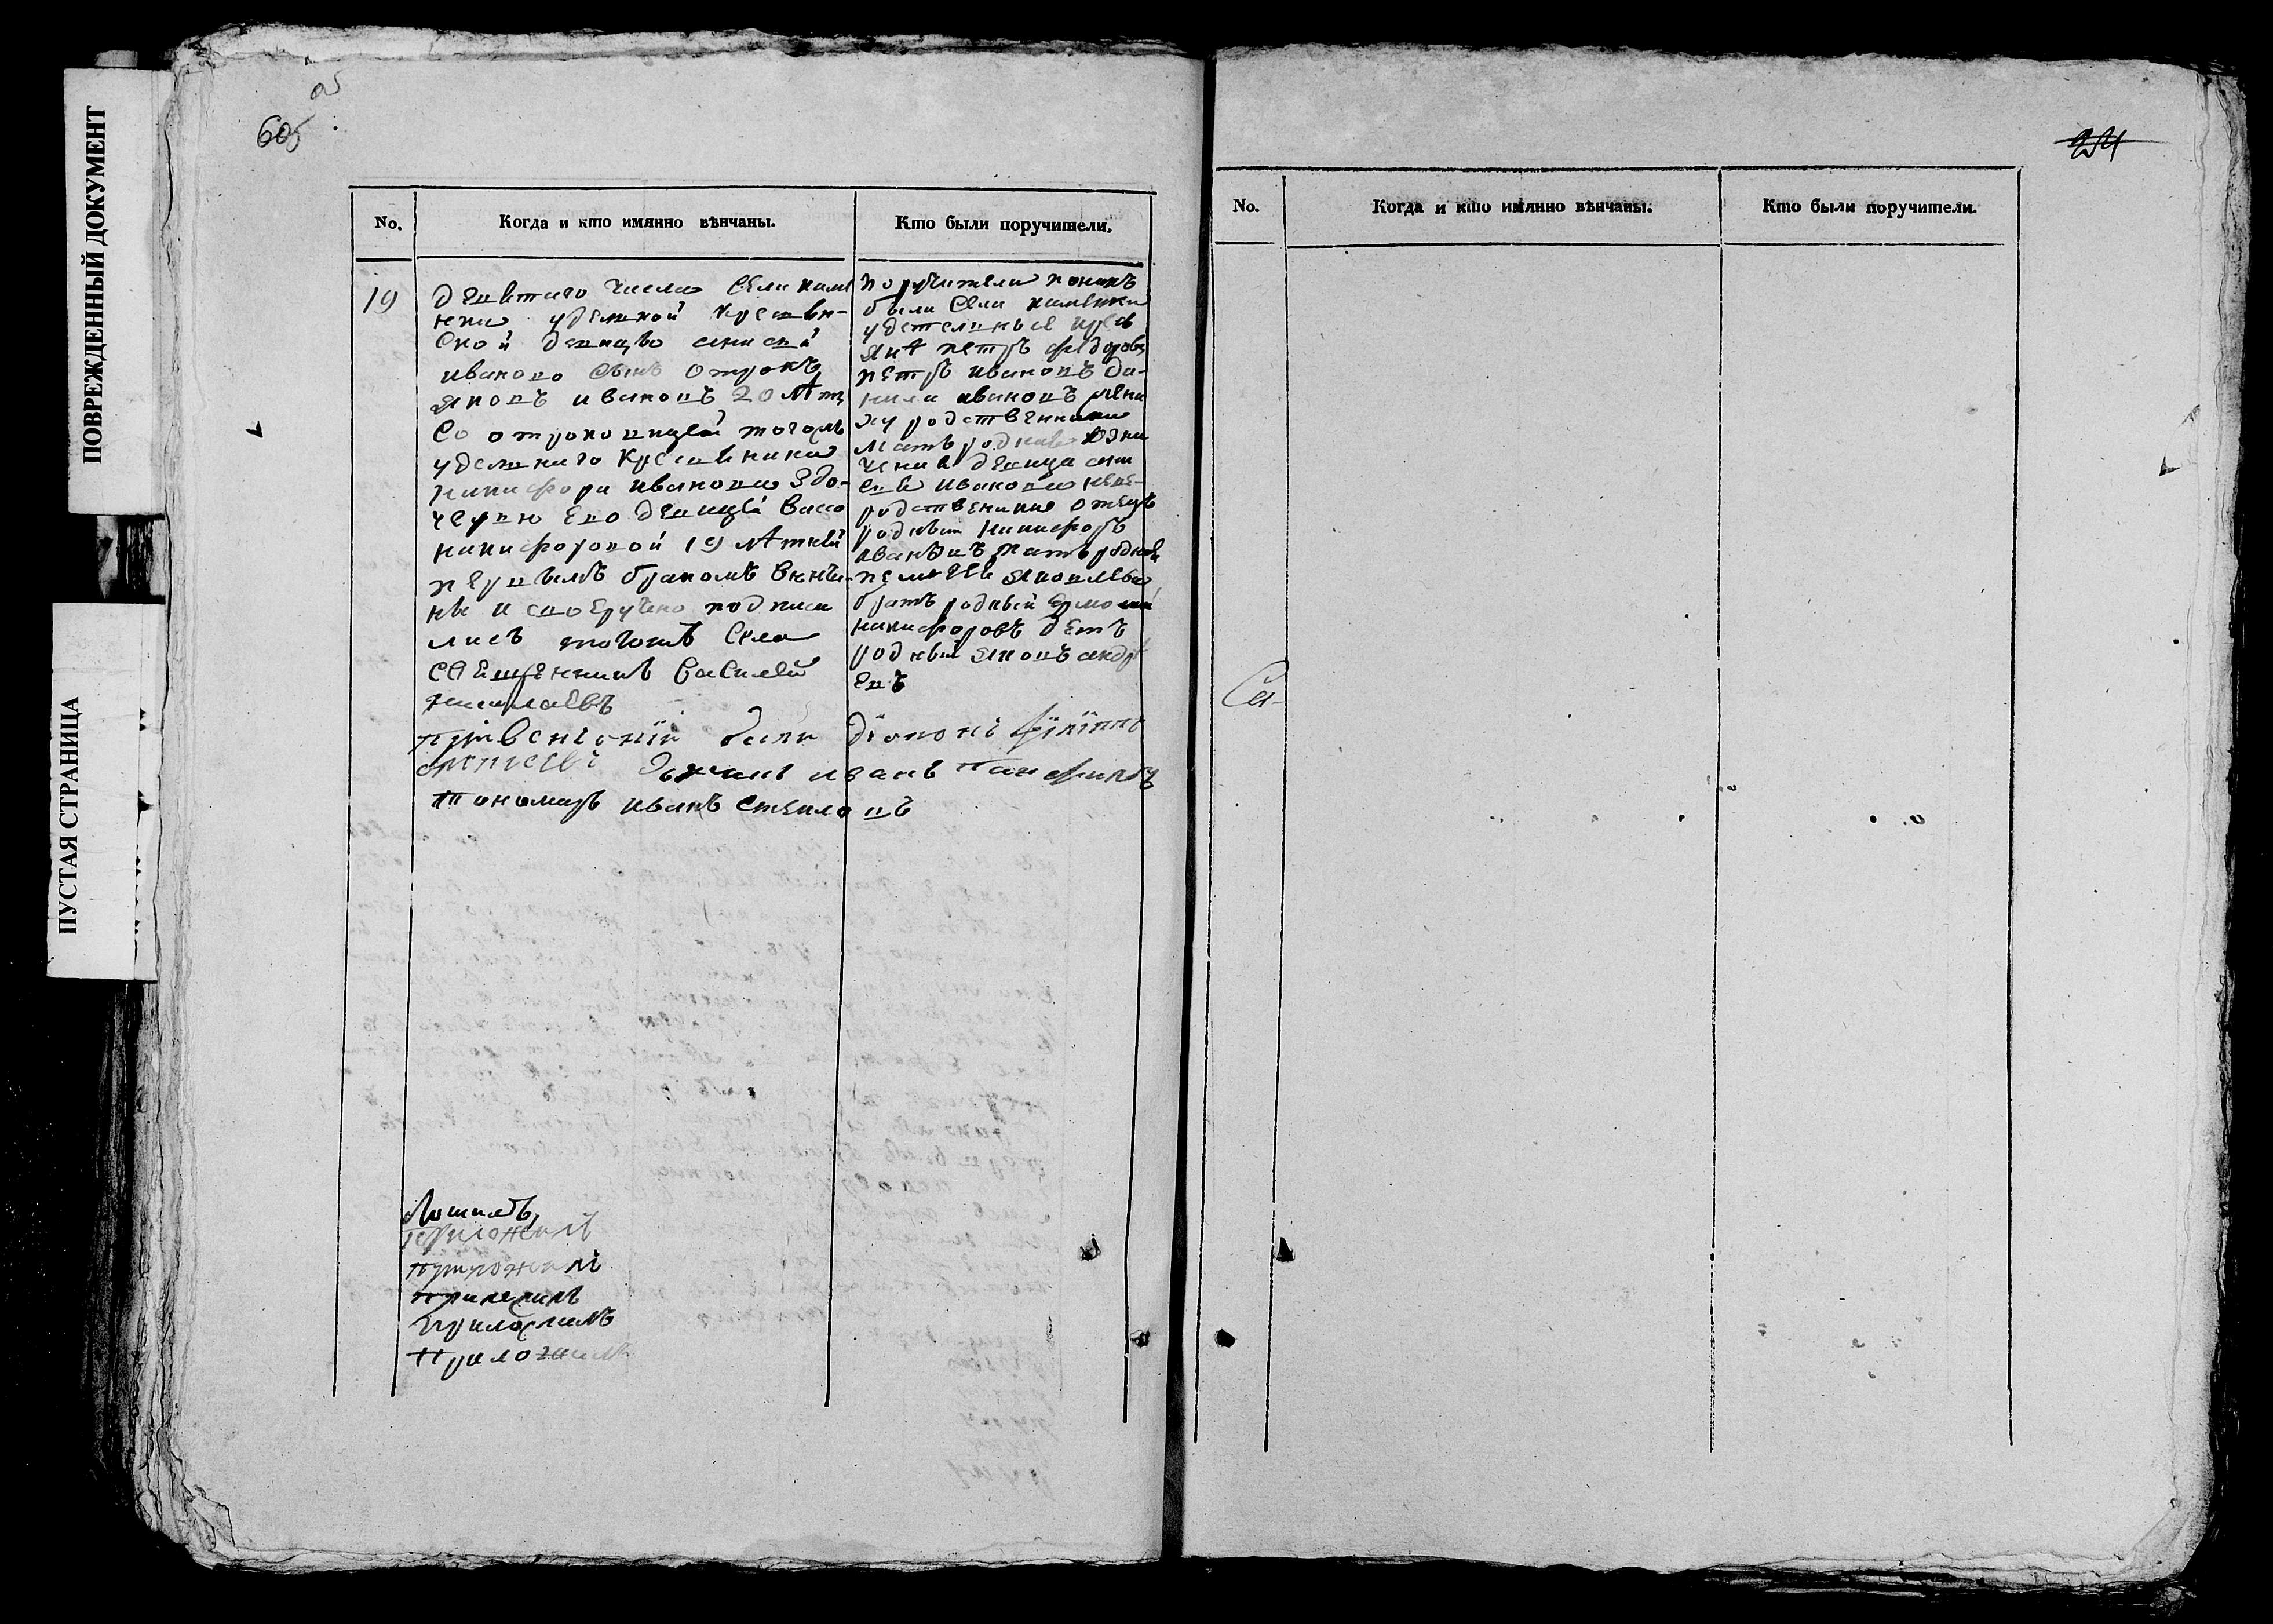 ПОВРЕЖДЕННЫЙ ДОКУМЕНТ
ПУСТАЯ СТРАНИЦА
об
605
No.
Когда и кто имянно вѣнчаны.
Кто были поручители.
19
девятаго числа Села каме
нки удельной крестьян-
Ской девицы
иванова сынъ отрокъ
яковъ ивановъ 20 лѣтъ
Со отроковицей тогожъ
удельнаго Крестьянина
никифора иванова здо-
черью ево девицей васса
никифоровой 19 лѣтней
первымъ бракомъ венча-
ны и своеручно подписа
лись тогожъ Села
священникъ василей
николаевъ
поручители по нихъ
были Села каменки
удельные крест
яня петръ федоровъ
петръ ивановъ да-
нила ивановъ жени
ху родственники
мать родная
девица
ивановна неве-
родственники отецъ
родный никифоръ
ивановъ мать родная
яковлева
братъ родный ермолай
никифоровъ
родный яковъ андре
евъ
при венчании были диаконъ Филиппъ
дьячокъ иванъ
Пономарь иванъ
приложилъ
приложилъ
приложилъ
приложилъ
254
No.
Когда и кто имянно вѣнчаны.
Кто были поручители.
Са-